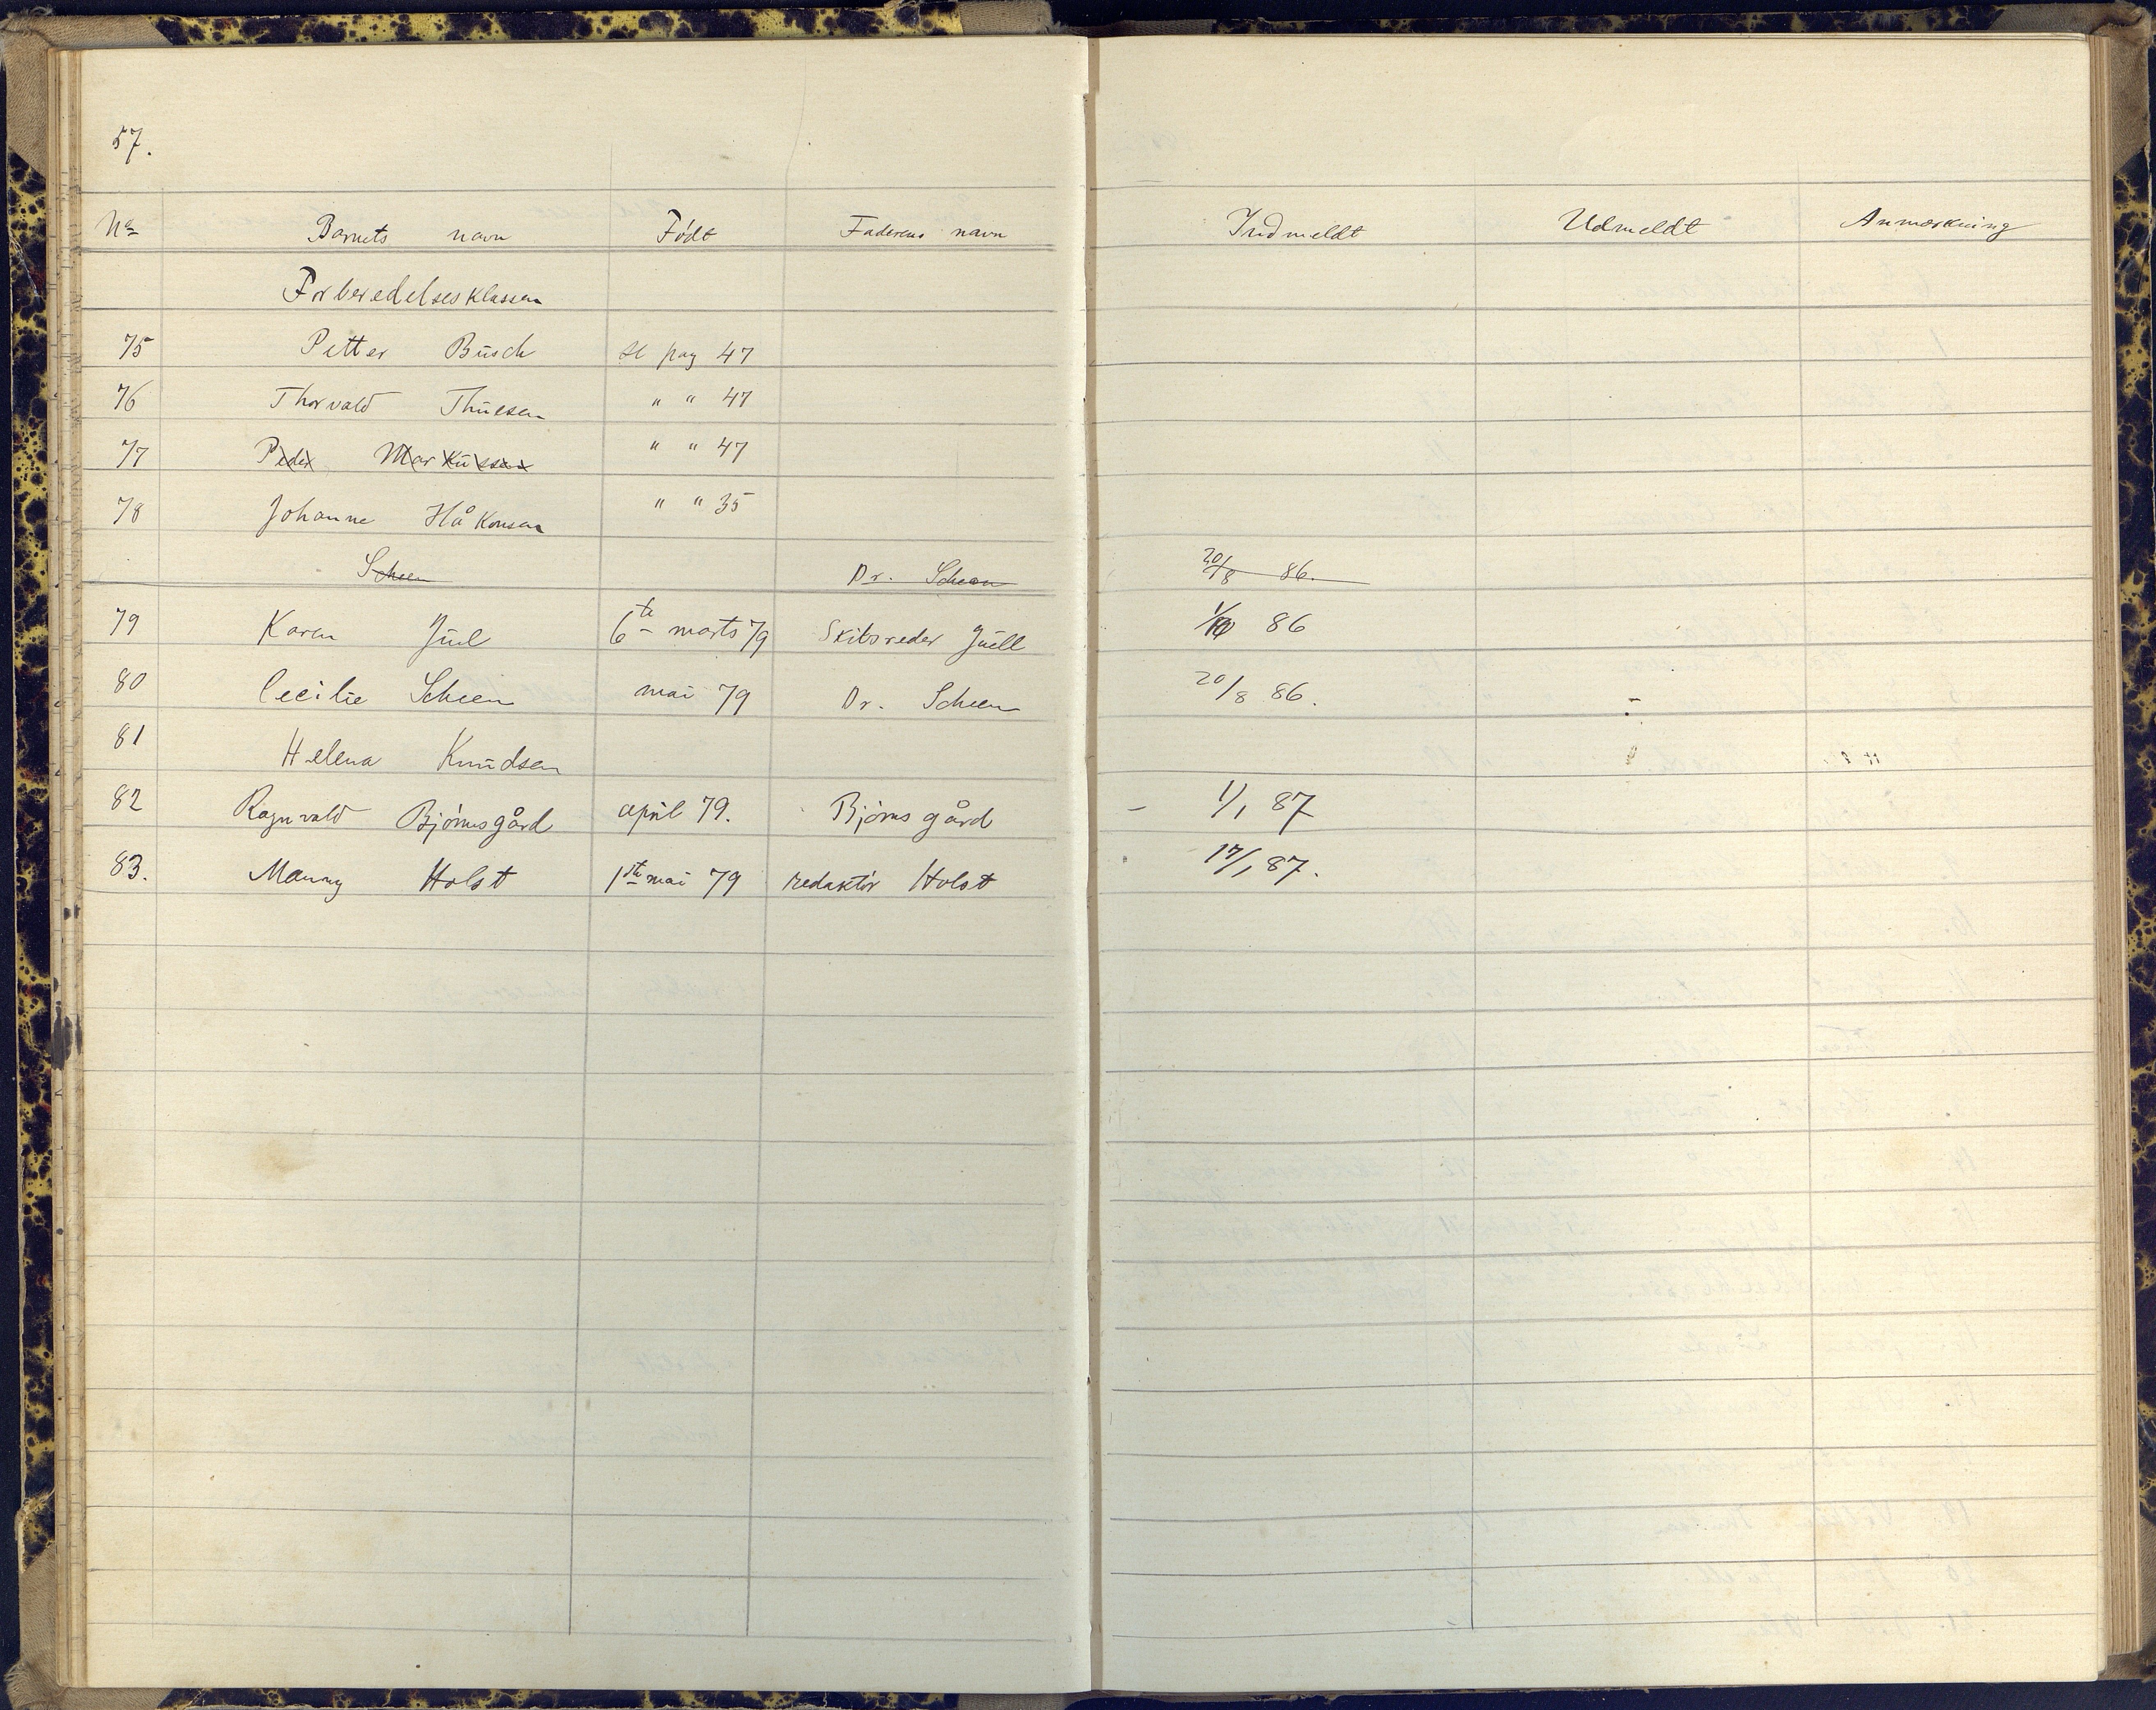 57.
No Barnets navn Födt Faderens navn Indmeldt Udmeldt Anmærkning
Forberedelsesklassen
75 Petter Büsch se pag 47
76 Thorvald Thüesen " " 47
77 Peder Markussen " " 47
78 Johanne Håkonsen " " 35
Scheen Dr. Scheen 20/8 86.
79 Karen Jüel 6te marts 79 Skibsreder Jüell 1/10 86
80 Cecilie Scheen mai 79 Dr. Scheen 20/8 86.
81 Helena Knüdsen
82 Ragnvald Björnsgård april 79. Björnsgård 1/1 87
83. Manny Holst 1ste mai 79 redaktör Holst 17/1 87.